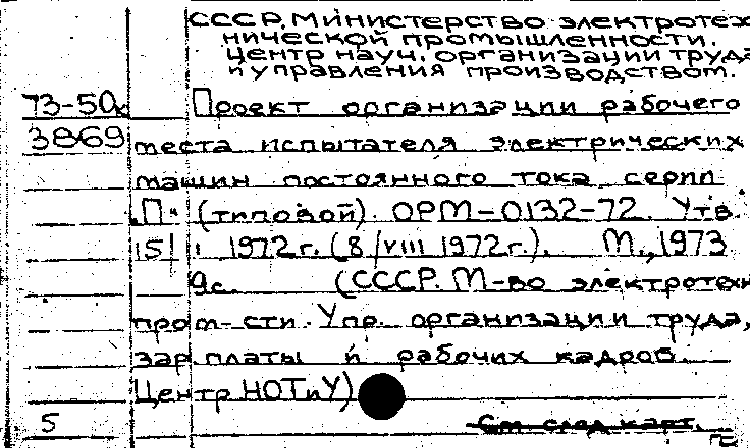 СССР, Министерство электротех
нической промышленности.
Центр науч. организации труда
и управления производством.
73-50к Проект организации рабочего
3869 места испытателя электрических
машин постоянного тока серии
"П" (типовой). ОРМ-0132-72. Утв.
15/ 1972г. (8/VIII 1972г.). М., 1973
9с. (СССР. М-во электротехн
пром-сти. Упр. организации труда,
зарплаты и рабочих кадров.
Центр НОТиУ)
5 См след карт.